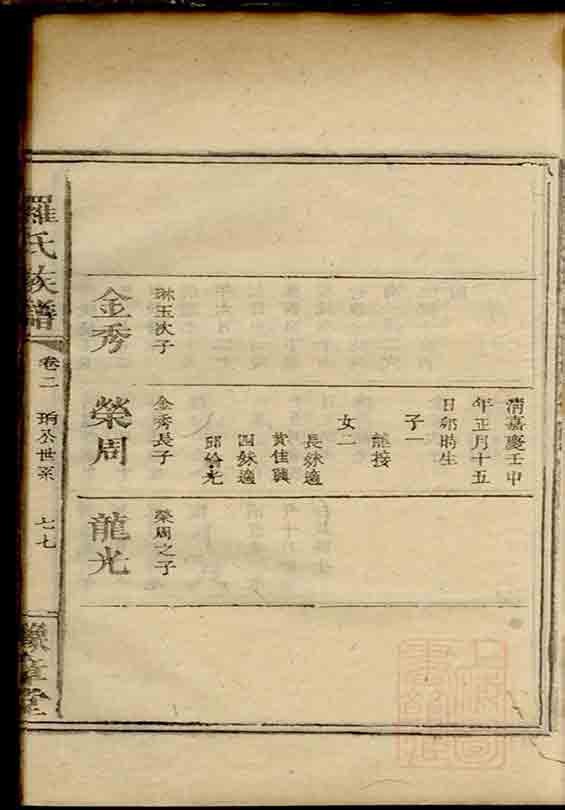 琳玉次子
金秀
清嘉慶壬申
年正月十五
日卯時生
子一
龍接
女二
長妹適
黃佳興
四妹適
金秀長子
榮周
榮周之子
龍光
羅氏族譜
卷二
公世系
七七
豫章堂